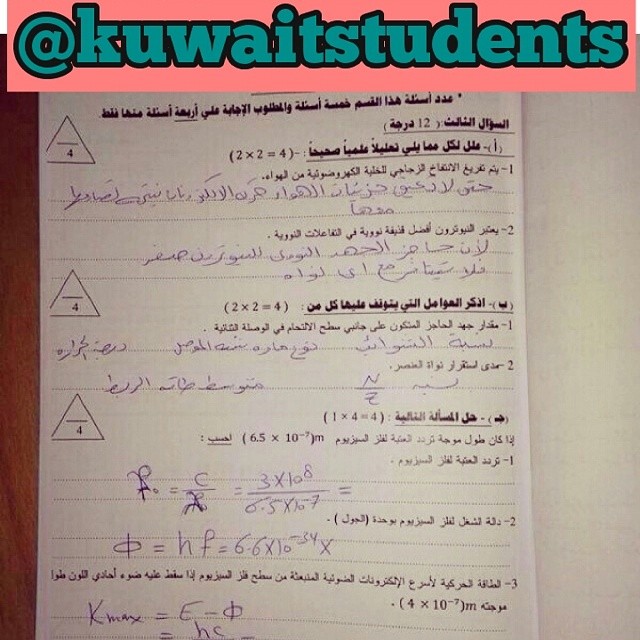 @kuwaitstudents
* عدد أسئلة هذا القسم خمسة أسئلة والمطلوب الإجابة على أربعة أسئلة منها فقط.
السؤال الثالث: ( 12 درجة )
(أ)- علل لكل مما يلي تعليلاً علمياً صحيحاً :- (4 = 2 × 2)
4
1- يتم تفريغ الانتفاخ الزجاجي للخلية الكهروضوئية من الهواء.
حتى لا تعيق جزيئات الهواء حركة الالكترونات نتيجة تصادمها
معها
2- يعتبر النيوترون أفضل قذيفة نووية في التفاعلات النووية .
لأن حاجز الجهد النووي للنيوترون صفر
فلا يتنافر مع اي نواه
4
(ب)- اذكر العوامل التي يتوقف عليها كل من : (4 = 2 × 2)
1- مقدار جهد الحاجز المتكون على جانبي سطح الالتحام في الوصلة الثنائية .
نسبة الشوائب نوع مادة شبه الموصل درجة الحرارة
2-مدى استقرار نواة العنصر.
نسبه N/Z متوسط طاقه الربط
4
(جـ)- حل المسألة التالية : (4 = 4 × 1)
إذا كان طول موجة تردد العتبة لفلز السيزيوم (6.5 × 10⁻⁷)m احسب :
1- تردد العتبة لفلز السيزيوم .
= C/λ = 3×10⁸/6.5×10⁻⁷ =
2- دالة الشغل لفلز السيزيوم بوحدة (الجول) .
Φ = hf = 6.6×10⁻³⁴×
3- الطاقة الحركية لأسرع الإلكترونات الضوئية المنبعثة من سطح فلز السيزيوم إذا سقط عليه ضوء أحادي اللون طول
موجته (4 × 10⁻⁷)m .
Kmax = E - Φ
= hc -